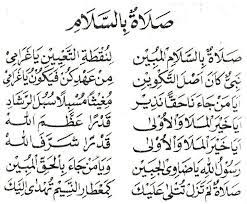 صَلَاةٌ بِالسَّلَامِ
صَلَاةٌ بِالسَّلَامِ الْمُبِينِ لِنُقْطَةِ التَّعْيِينِ يَاغَرَامِي
نَبِيٌّ كَانَ اَصْلَ التَّكْوِينِ مِنْ عَهْدِ كُنْ فَيَكُونُ يَاغَرَامِي
اَيَا مَنْ جَاءَنَا حَقًّا نَذِيْرِ مُغِيْثًا مُسْبِلًا سُبُلَ الرَّشَادِ
اَيَا خَيْرَ الْمَلَا وَالْاُولَى قَدْرًا عَظَّمَ اللهُ
اَيَا خَيْرَ الْمَلَا وَالْاُولَى قَدْرًا شَرَّفَ اللهُ
رَسُولَ اللهِ يَا ضَاوِي الْجَبِينِ وَيَا مَنْ جَاءَ بِالْحَقِّ الْمُبِينِ
صَلَاةٌ لَمْ تَزَلْ تُتْلَى عَلَيْكَ كَمِعْطَارِ النَّسِيْمِ تُهْدَى اِلَيْكَ